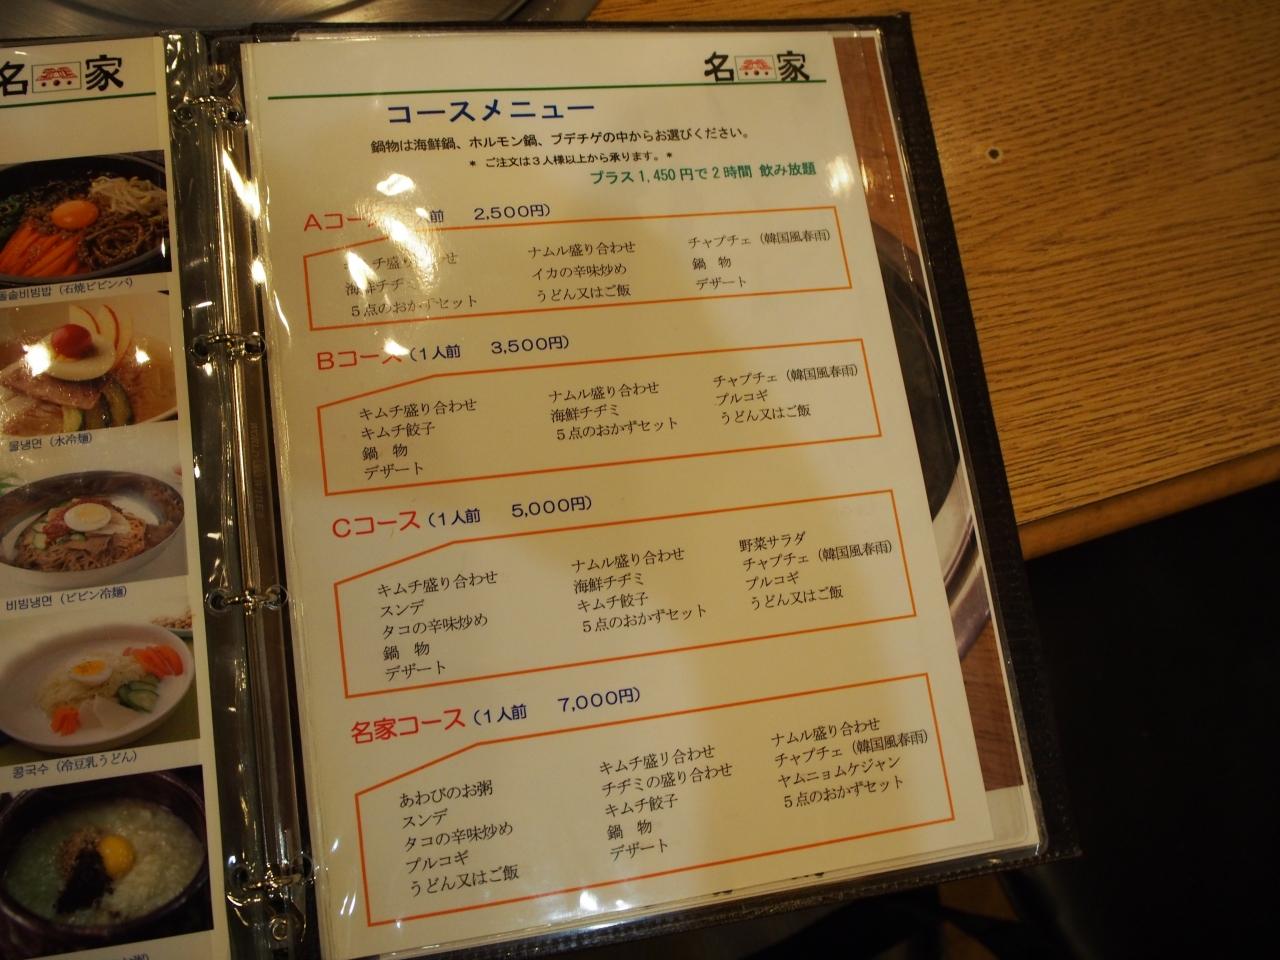 名 家
돌솥비빔밥 (石焼ビビンバ)
물냉면 (水冷麺)
비빔냉면 (ビビン冷麺)
콩국수 (冷豆乳うどん)
名 家
コースメニュー
鍋物は海鮮鍋、ホルモン鍋、プデチゲの中からお選びください。
* ご注文は3人様以上から承ります。*
プラス1,450円で2時間 飲み放題
Aコー 前 2,500円)
キムチ盛り合わせ ナムル盛り合わせ チャプチェ (韓国風春雨)
海鮮チヂミ イカの辛味炒め 鍋 物
5点のおかずセット うどん又はご飯 デザート
Bコース (1人前 3,500円)
キムチ盛り合わせ ナムル盛り合わせ チャプチェ (韓国風春雨)
キムチ餃子 海鮮チヂミ プルコギ
鍋 物 5点のおかずセット うどん又はご飯
デザート
Cコース (1人前 5,000円)
野菜サラダ
キムチ盛り合わせ ナムル盛り合わせ チャプチェ (韓国風春雨)
スンデ 海鮮チヂミ プルコギ
タコの辛味炒め キムチ餃子 うどん又はご飯
鍋 物 5点のおかずセット
デザート
名家コース (1人前 7,000円)
あわびのお粥 キムチ盛り合わせ ナムル盛り合わせ
スンデ チヂミの盛り合わせ チャプチェ (韓国風春雨)
タコの辛味炒め キムチ餃子 ヤムニョムケジャン
プルコギ 鍋 物 5点のおかずセット
うどん又はご飯 デザート